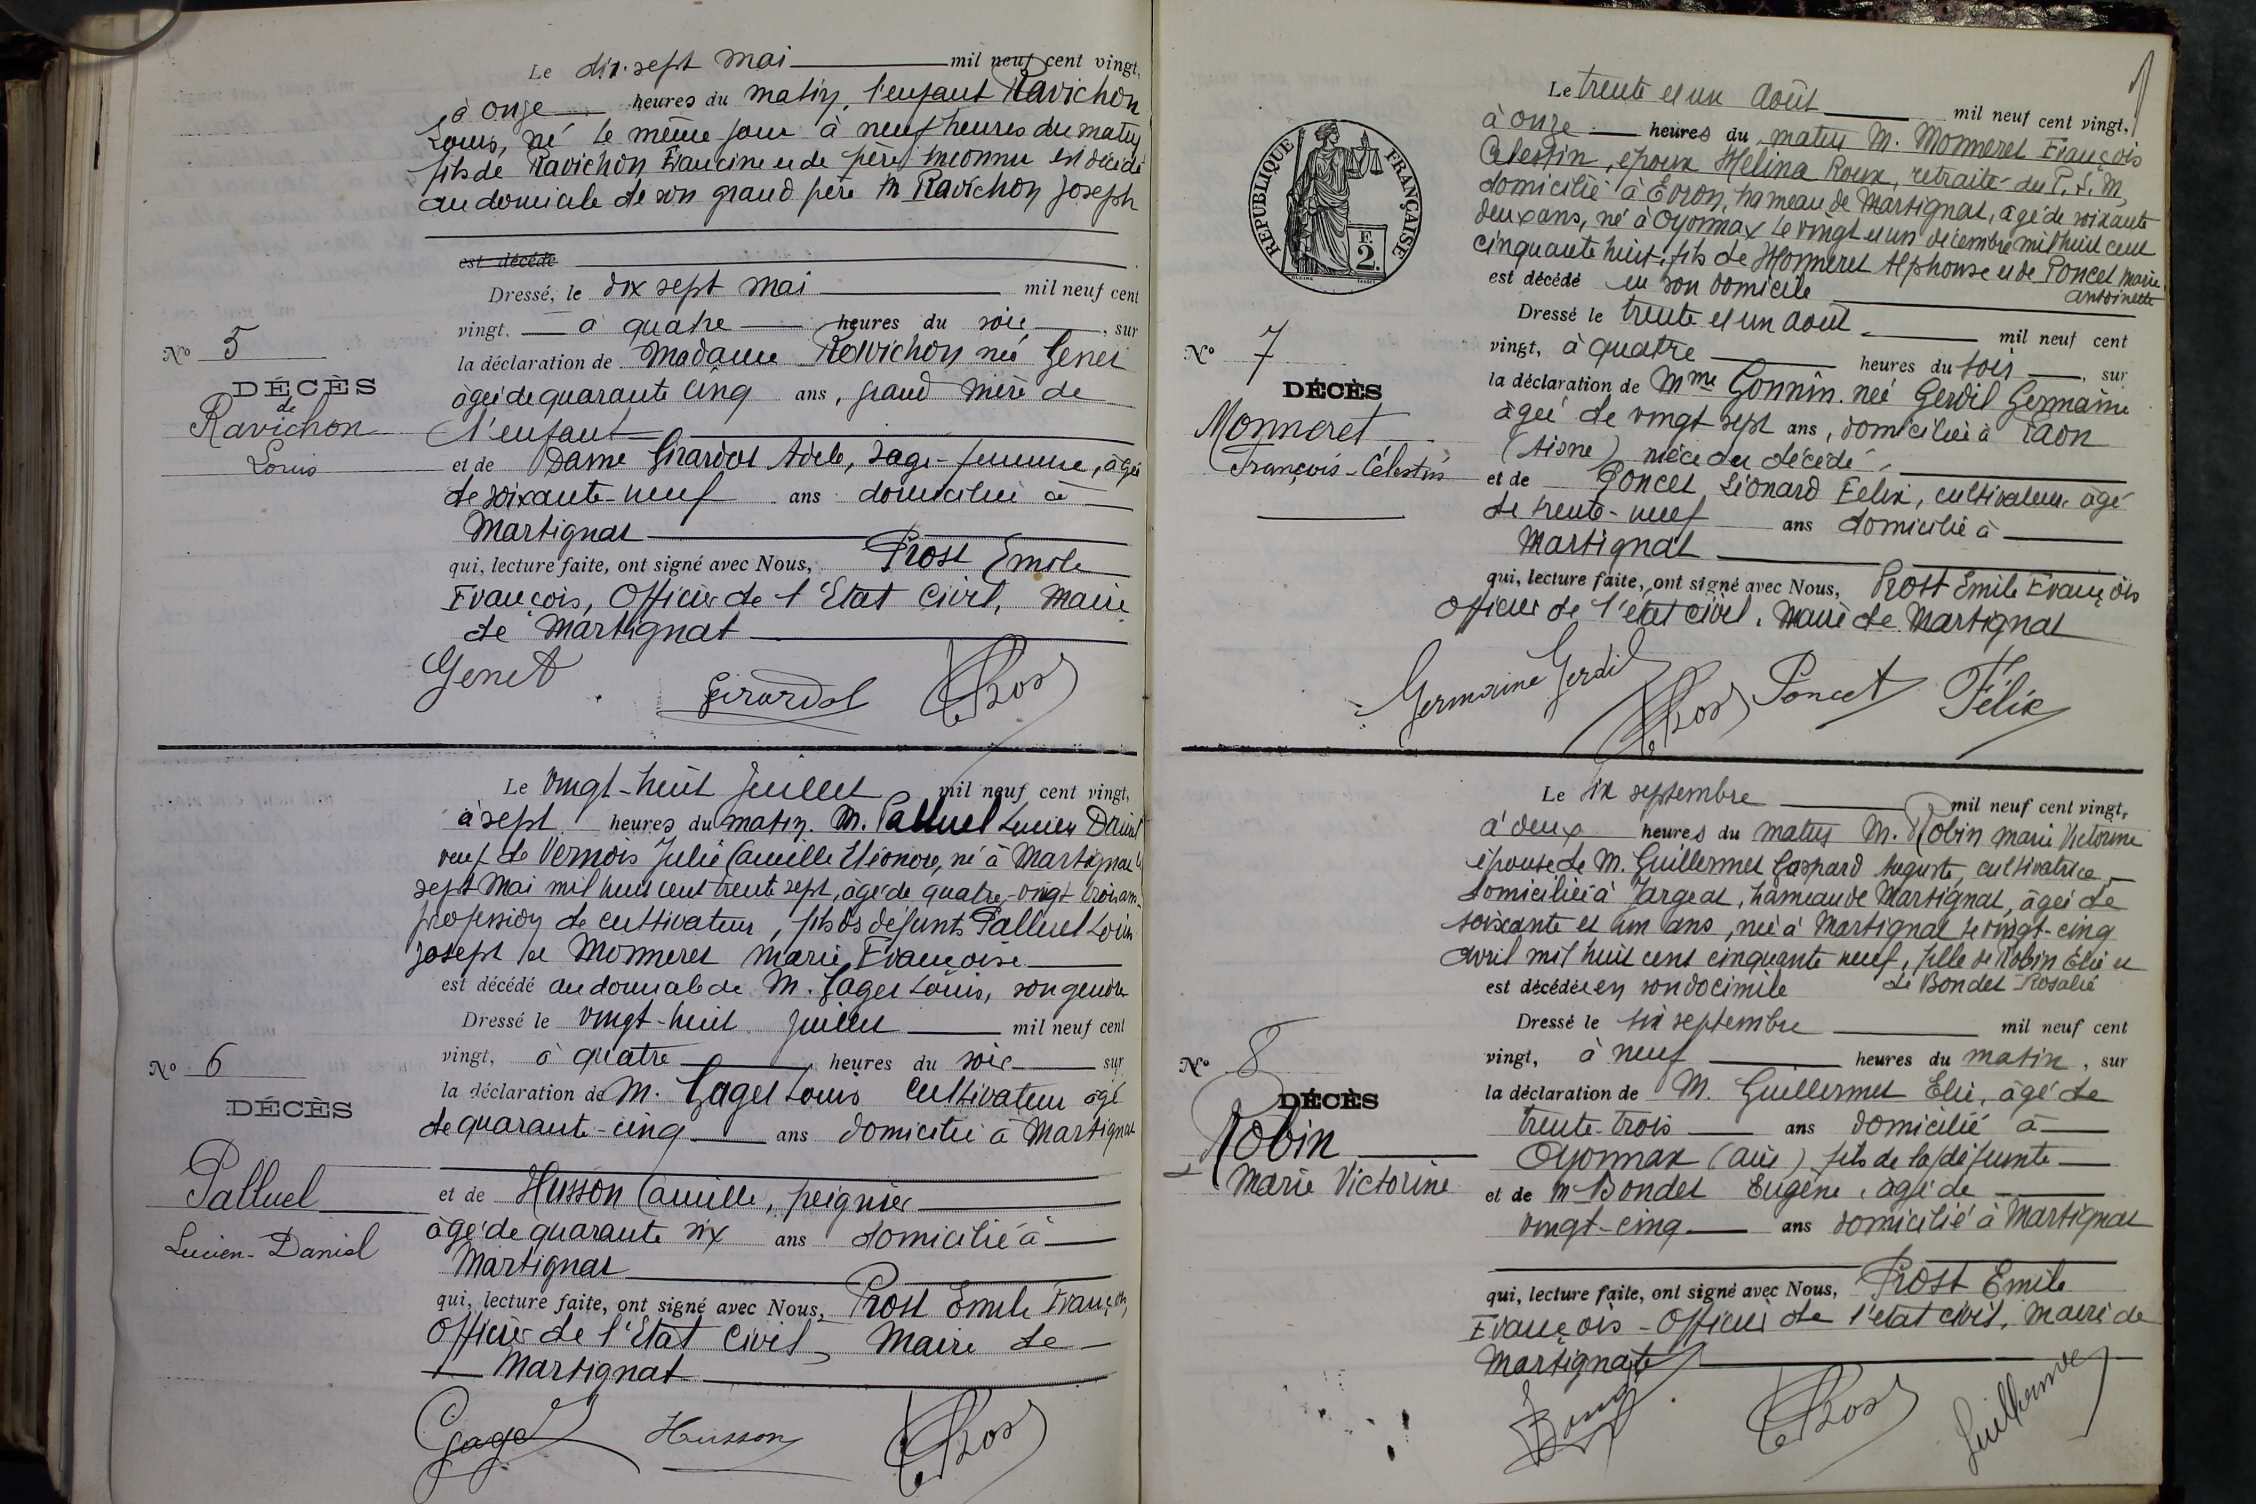 Le dix-sept mai mil neuf cent vingt,
à onze heures du matin, l'enfant Ravichon
Louis, né le même jour à neuf heures du matin
fils de Ravichon Francine et de père inconnu est décédé
au domicile de son grand père M Ravichon Joseph
est décédé
Dressé, le dix sept mai mil neuf cent
vingt, à quatre heures du soir, sur
la déclaration de Madame Ravichon née Genet
âgée de quarante cinq ans, grand mère de
l'enfant
et de Dame Girardot Adele, sage-femme, âgée
de soixante-neuf ans domiciliée à
Martignat
qui, lecture faite, ont signé avec Nous, Prost Emile
François, Officier de l'Etat Civil, Maire
de Martignat
Nº 5
DÉCÈS
de
Ravichon
Louis
Genet
Girardot
Prost
Le vingt-huit Juillet mil neuf cent vingt,
à sept heures du matin. M. Palluel Lucien Daniel
veuf de Vernois Julie Camille Eléonore, né à Martignat le
sept Mai mil huit cent trente sept, âgé de quatre-vingt trois ans
profession de cultivateur, fils des défunts Palluel Louis
Joseph et Monneret Marie Françoise
est décédé au domicile de M. Gaget Louis, son gendre
Dressé le vingt-huit Juillet mil neuf cent
vingt, à quatre heures du soir sur
la déclaration de M. Gaget Louis cultivateur âgé
de quarante-cinq ans domicilié à Martignat
et de Husson Camille, peignier
âgé de quarante six ans domicilié à
Martignat
qui, lecture faite, ont signé avec Nous, Prost Emile François,
Officier de l'Etat Civil, Maire de
Martignat
Nº 6
DÉCÈS
Palluel
Lucien-Daniel
Gaget
Husson
Prost
Le trente et un Août mil neuf cent vingt,
à onze heures du matin M. Monneret François
Célestin, époux Hélina Roux, retraité du P.L.M,
domicilié à Evron, hameau de Martignat, âgé de soixante
deux ans, né à Oyonnax le vingt et un décembre mil huit cent
cinquante huit, fils de Monneret Alphonse et de Poncet Marie
Antoinette
est décédé en son domicile
Dressé le trente et un Aout mil neuf cent
vingt, à quatre heures du soir, sur
la déclaration de Mme Gonnin née Gerdil Germaine
âgée de vingt sept ans, domiciliée à Laon
(Aisne) nièce du décédé,
et de Poncet Léonard Felix, cultivateur âgé
de trente-neuf ans domicilié à
Martignat
qui, lecture faite, ont signé avec Nous, Prost Emile François
Officier de l'état civil, Maire de Martignat
RÉPUBLIQUE FRANÇAISE
F.
2.
Nº 7
DÉCÈS
Monneret
François-Célestin
Germaine Gerdil
Prost
Poncet Félix
Le six septembre mil neuf cent vingt,
à deux heures du matin M. Robin Marie Victorine
épouse de M. Guillermet Gaspard Auguste, cultivatrice
domiciliée à Jargeat, hameau de Martignat, âgée de
soixante et un ans, née à Martignat le vingt-cinq
avril mil huit cent cinquante neuf, fille de Robin Elie et
de Bondet Rosalie
est décédée en son docimile
Dressé le six septembre mil neuf cent
vingt, à neuf heures du matin, sur
la déclaration de M. Guillermet Elie, âgé de
trente-trois ans domicilié à
Oyonnax (Ain) fils de la défunte
et de M Bondet Eugène, âgé de
vingt-cinq ans domicilié à Martignat
qui, lecture faite, ont signé avec Nous, Prost Emile
François - Officier de l'état civil, Maire de
Martignat
Nº 8
DÉCÈS
Robin
Marie Victorine
Prost
Guillermet